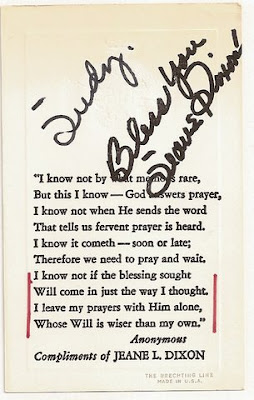 Judy,
Bless You
Jeane Dixon
"I know not by what methods rare,
But this I know — God answers prayer,
I know not when He sends the word
That tells us fervent prayer is heard.
I know it cometh — soon or late;
Therefore we need to pray and wait.
I know not if the blessing sought
Will come in just the way I thought.
I leave my prayers with Him alone,
Whose Will is wiser than my own."
Anonymous
Compliments of JEANE L. DIXON
THE DRECHTING LINE
MADE IN U.S.A.